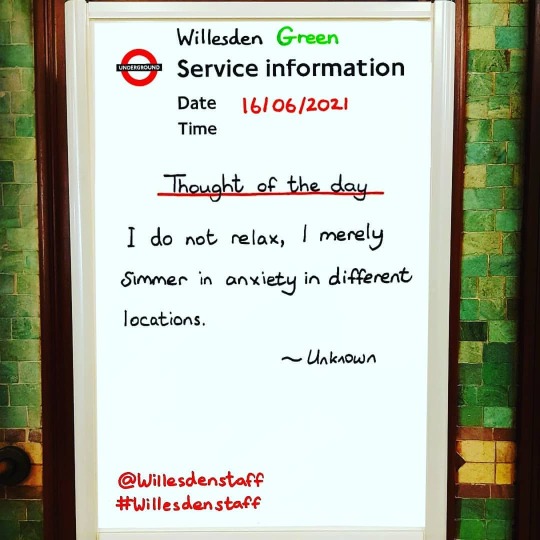 Willesden Green
UNDERGROUND
Service information
Date 16/06/2021
Time
Thought of the day
I do not relax, I merely
simmer in anxiety in different
locations.
~ Unknown
@Willesdenstaff
#Willesdenstaff